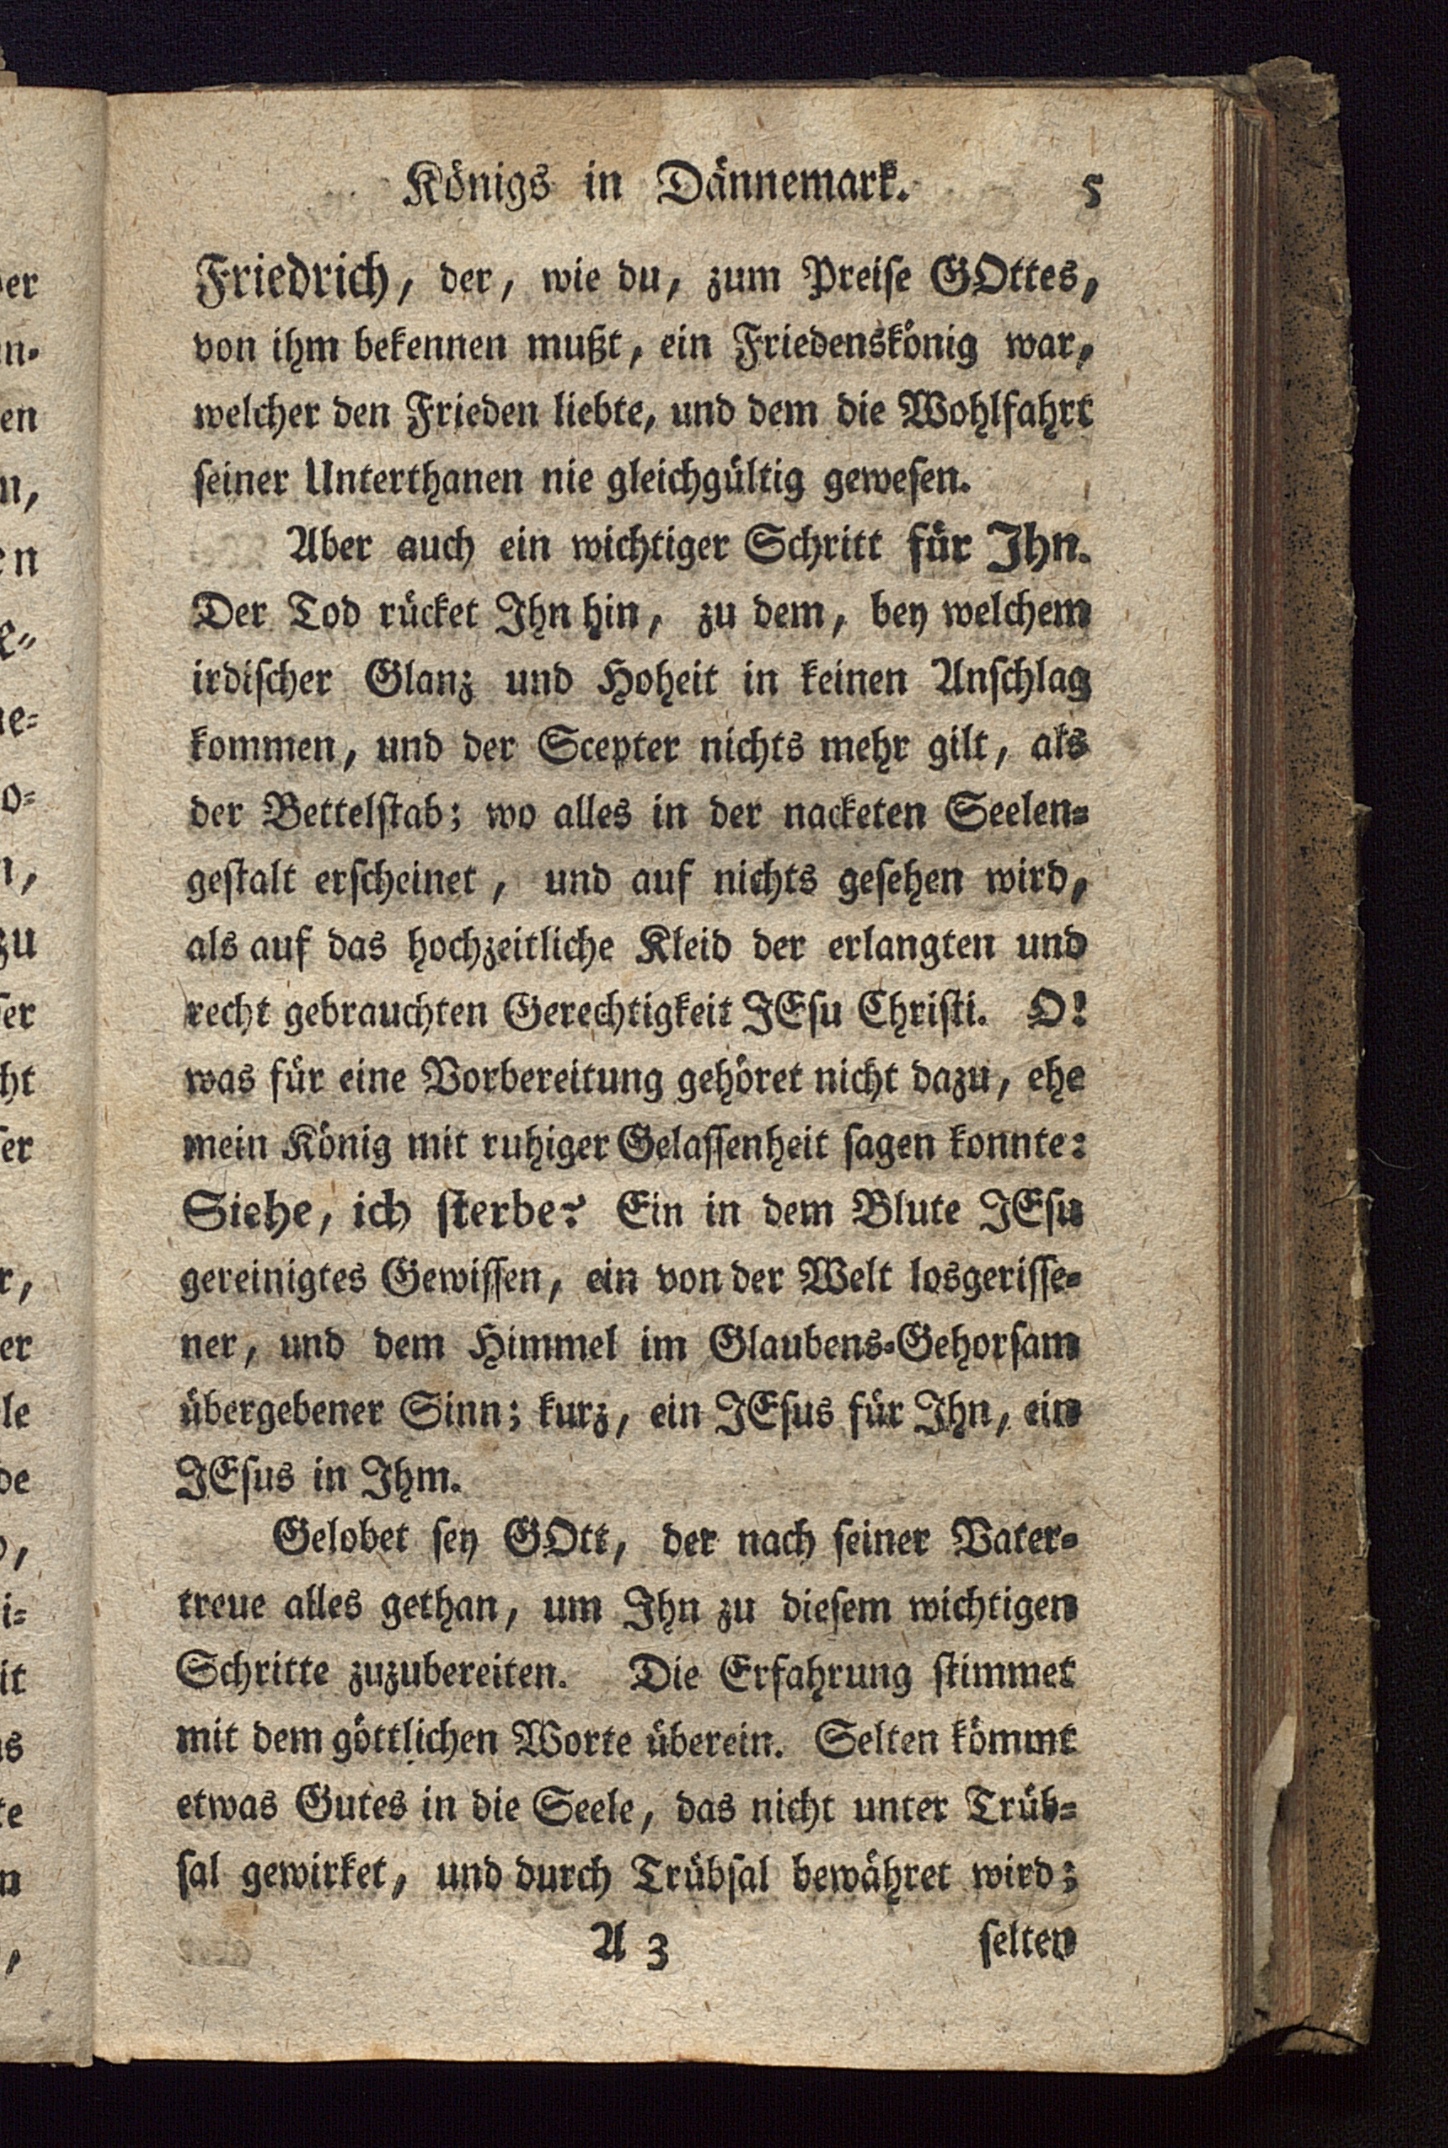 Königs in Dännemark. 5
Friedrich, der, wie du, zum Preise GOttes,
von ihm bekennen mußt, ein Friedenskönig war,
welcher den Frieden liebte, und dem die Wohlfahrt
seiner Unterthanen nie gleichgültig gewesen.
Aber auch ein wichtiger Schritt für Ihn.
Der Tod rücket Ihn hin, zu dem, bey welchem
irdischer Glanz und Hoheit in keinen Anschlag
kommen, und der Scepter nichts mehr gilt, als
der Bettelstab; wo alles in der nacketen Seelen-
gestalt erscheinet, und auf nichts gesehen wird,
als auf das hochzeitliche Kleid der erlangten und
recht gebrauchten Gerechtigkeit JEsu Christi. O!
was für eine Vorbereitung gehöret nicht dazu, ehe
mein König mit ruhiger Gelassenheit sagen konnte:
Siehe, ich sterbe? Ein in dem Blute JEsu
gereinigtes Gewissen, ein von der Welt losgerisse-
ner, und dem Himmel im Glaubens-Gehorsam
übergebener Sinn; kurz, ein JEsus für Ihn, ein
JEsus in Ihm.
Gelobet sey GOtt, der nach seiner Vater-
treue alles gethan, um Ihn zu diesem wichtigen
Schritte zuzubereiten. Die Erfahrung stimmet
mit dem göttlichen Worte überein. Selten kömmt
etwas Gutes in die Seele, das nicht unter Trüb-
sal gewirket, und durch Trübsal bewähret wird;
A 3 selten